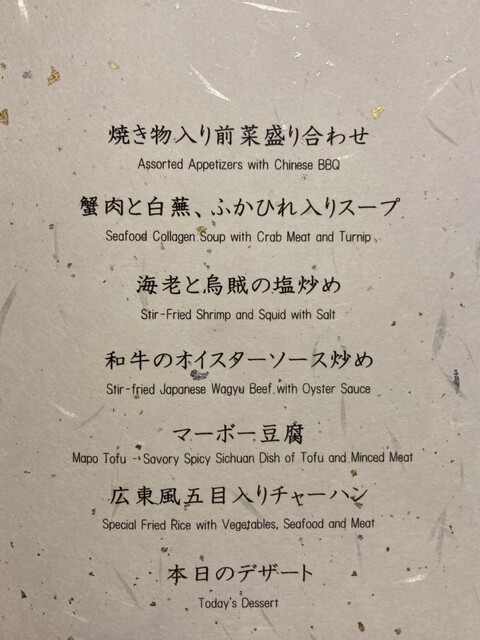 焼き物入り前菜盛り合わせ
Assorted Appetizers with Chinese BBQ
蟹肉と白蕪、ふかひれ入りスープ
Seafood Collagen Soup with Crab Meat and Turnip
海老と烏賊の塩炒め
Stir-Fried Shrimp and Squid with Salt
和牛のオイスターソース炒め
Stir-fried Japanese Wagyu Beef with Oyster Sauce
マーボー豆腐
Mapo Tofu - Savory Spicy Sichuan Dish of Tofu and Minced Meat
広東風五目入りチャーハン
Special Fried Rice with Vegetables, Seafood and Meat
本日のデザート
Today's Dessert